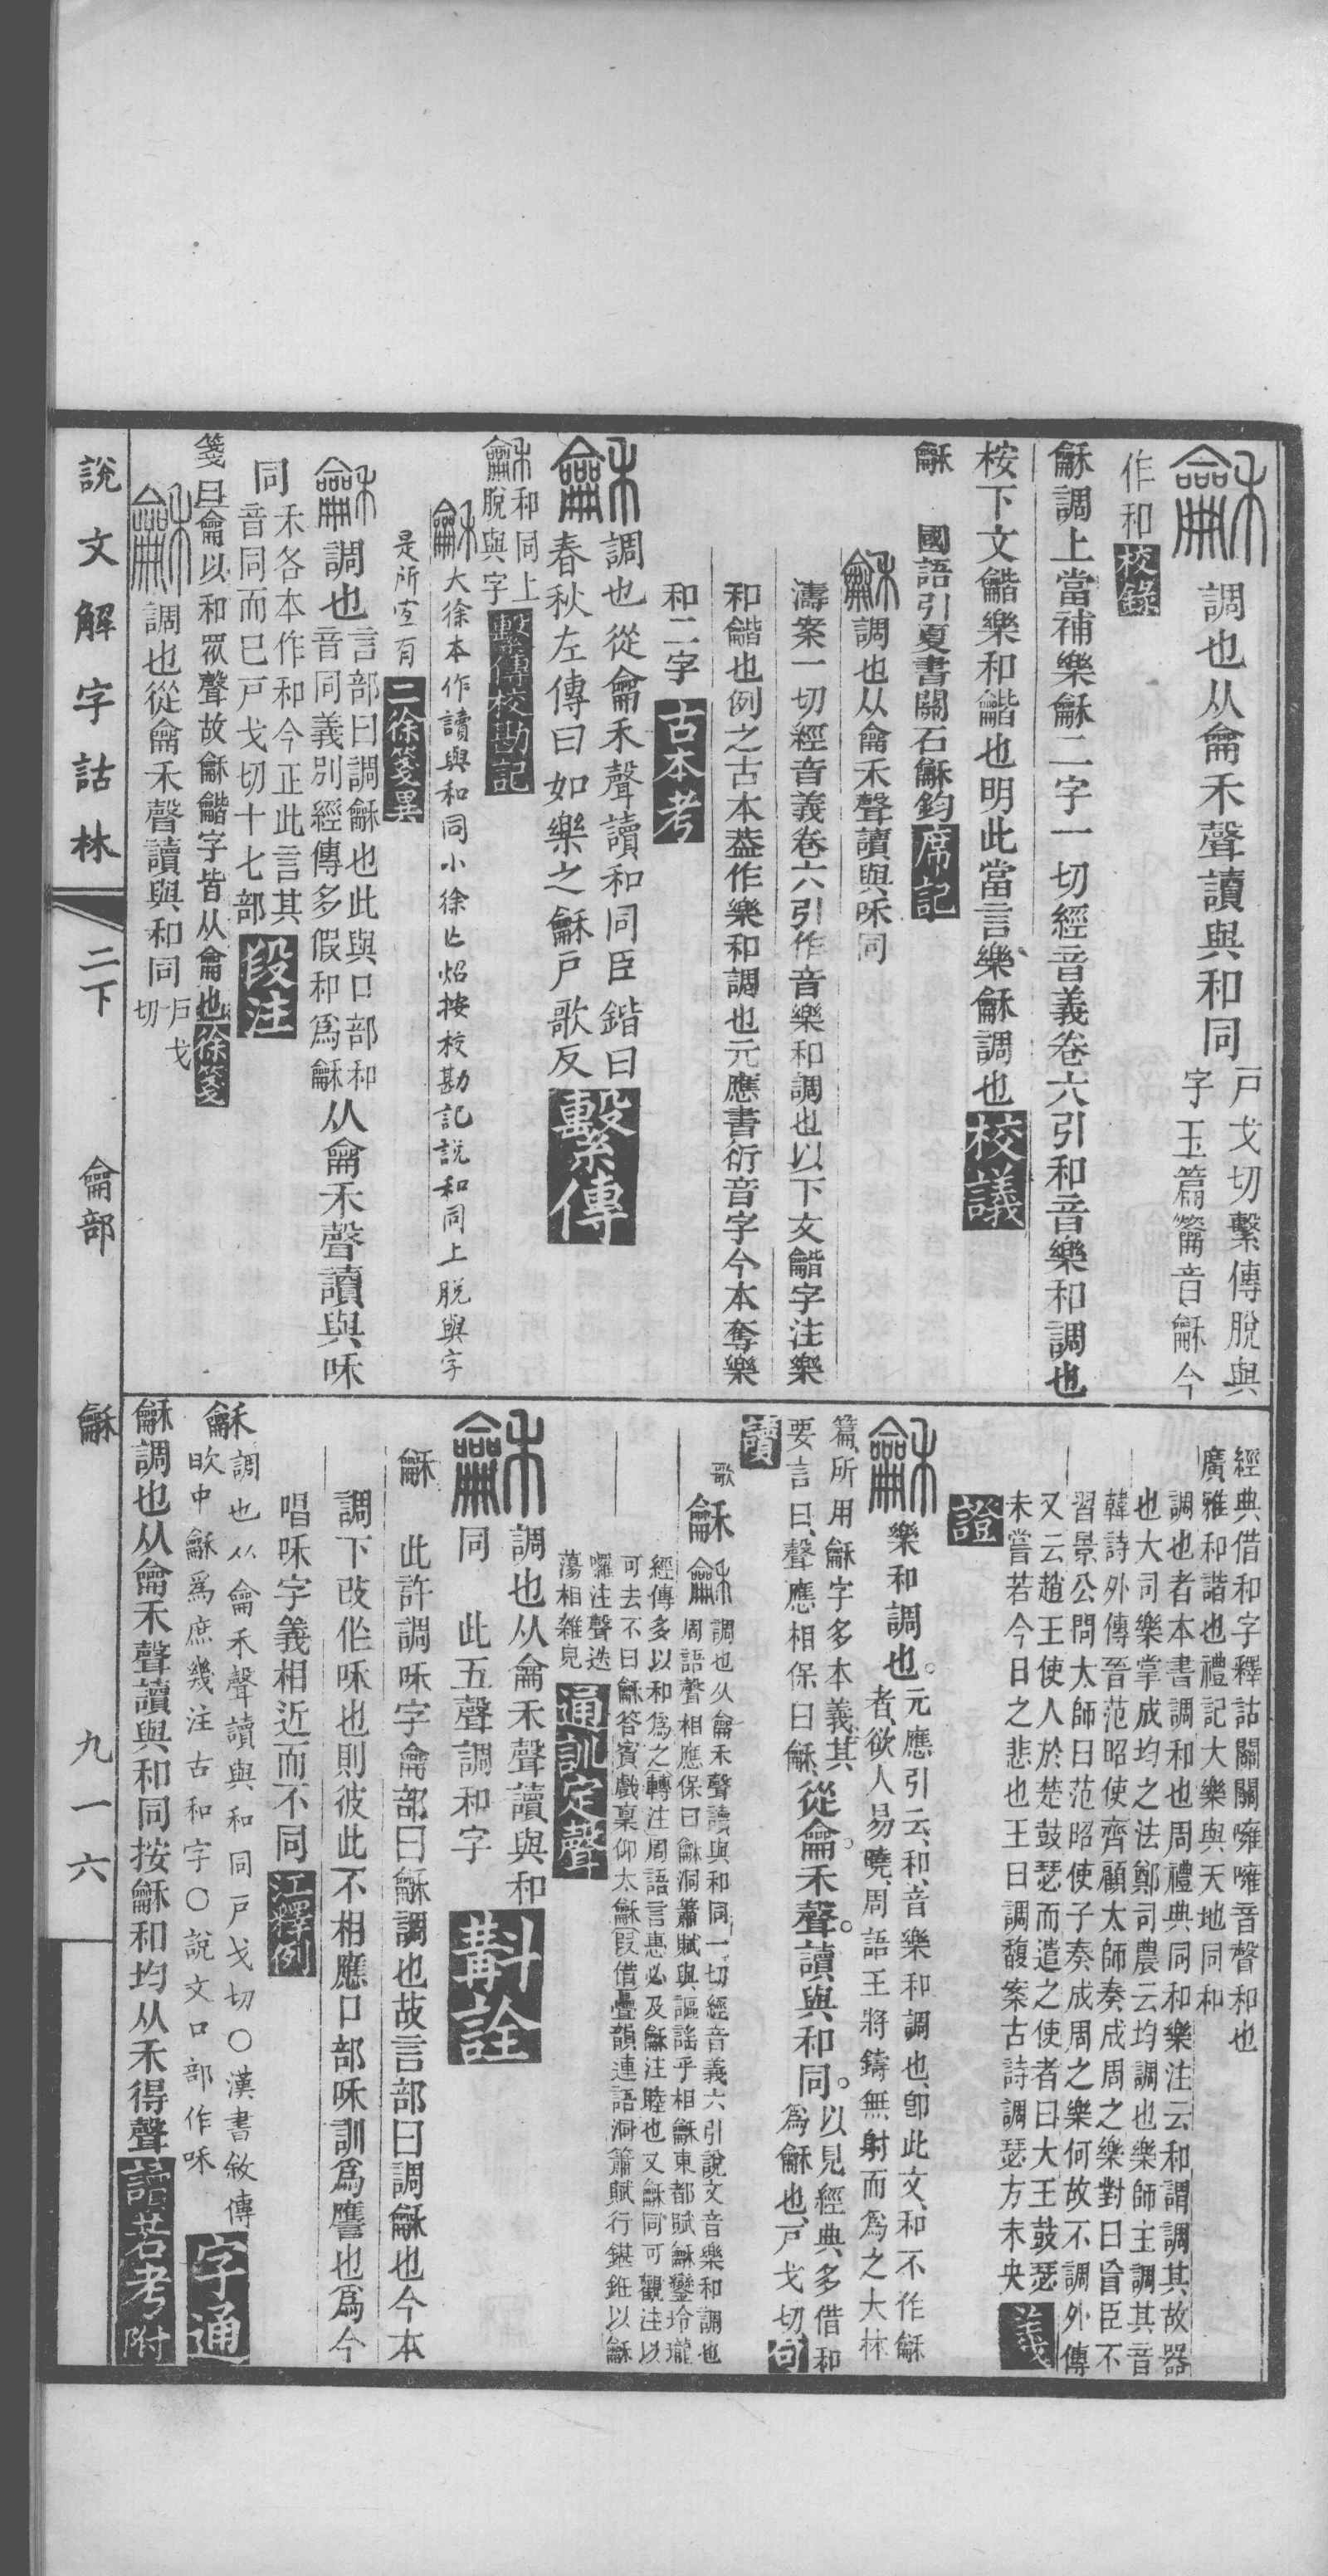 龢調也从龠禾聲讀與和同戶戈切繫傳脫與
字玉篇籥音龢今
作和校錄
龢調上當補樂龢二字一切經音義卷六引和音樂和調也
桉下文龤樂和龤也明此當言樂龢調也校議
龢 國語引夏書關石龢鈞席記
龢調也从龠禾聲讀與咊同
濤案一切經音義卷六引作音樂和調也以下文龤字注樂
和龤也例之古本葢作樂和調也元應書衍音字今本奪樂
和二字古本考
龢調也從龠禾聲讀和同臣鍇曰
春秋左傳曰如樂之龢戶歌反繫傳
龢和同上
脫與字繫傳校勘記
龢大徐本作讀與和同小徐亾炤按校勘記説和同上脫與字
是所宐有二徐箋異
龢調也言部曰調龢也此與口部和
音同義別經傳多假和爲龢从龠禾聲讀與咊
同禾各本作和今正此言其
音同而已戶戈切十七部段注
箋曰龠以和眾聲故龢龤字皆从龠也徐箋
龢調也從龠禾聲讀與和同戶戈
切
經典借和字釋詁關關噰噰音聲和也
廣雅和諧也禮記大樂與天地同和
調也者本書調和也周禮典同和樂注云和謂調其故器
也大司樂掌成均之法鄭司農云均調也樂師主調其音
韓詩外傳晉范昭使齊顧太師奏成周之樂對曰盲臣不
習景公問太師曰范昭使子奏成周之樂何故不調外傳
又云趙王使人於楚鼓瑟而遣之使者曰大王鼓瑟
未嘗若今日之悲也王曰調馥案古詩調瑟方未央義
證
龢樂和調也。元應引云、和、音樂和調也、卽此文、和不作龢
者、欲人易曉、周語王將鑄無射而爲之大林
篇、所用龢字多本義、其
要言曰、聲應相保曰龢、從龠。禾聲。讀與和同。以見經典多借和
爲龢也、戶戈切句
讀
歌龢龢調也从龠禾聲讀與和同一切經音義六引說文音樂和調也
周語聲相應保曰龢洞簫賦與謳謠乎相龢東都賦龢鑾玲瓏
經傳多以和爲之轉注周語言惠必及龢注睦也又龢同可觀注以
可去不曰龢答賓戲稟仰太龢叚借疊韻連語洞簫賦行鍖銋以龢
囉注聲迭
蕩相雜皃通訓定聲
龢調也从龠禾聲讀與和
同 此五聲調和字斠詮
龢 此許調咊字龠部曰龢調也故言部曰調龢也今本
調下改作咊也則彼此不相應口部咊訓爲譍也爲今
唱咊字義相近而不同江釋例
龢調也从龠禾聲讀與和同戶戈切○漢書敘傳
欥中龢爲庶幾注古和字○說文口部作咊字通
龢調也从龠禾聲讀與和同按龢和均从禾得聲讀若考附
說文解字詁林 二下 龠部 龢 九一六